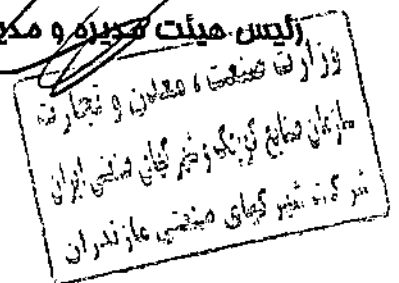 رئیس هیئت مدیره و مدیر
وزارت صنعت ، معدن و تجارت
سازمان صنایع کوچک و شهرکهای صنعتی ایران
شرکت شهرکهای صنعتی مازندران